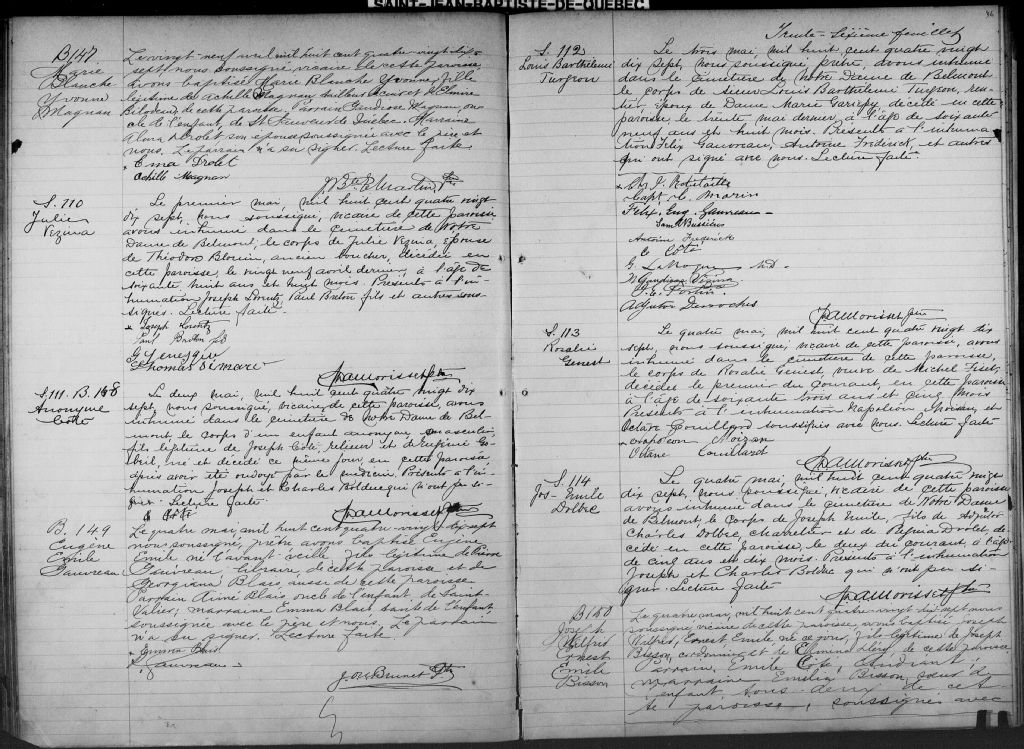 SAINT-JEAN-BAPTISTE-DE-QUÉBEC
B147
Marie
Blanche
Yvonne
Magnan
Le vingt-neuf avril mil huit cent quatre-vingt dix
sept, nous soussigné, vicaire de cette paroisse,
avons baptisé Marie Blanche Yvonne, fille
légitime de Achille Magnan
de cette paroisse. Parrain Magnan, on-
cle de l'enfant, de St Sauveur de Québec. Marraine
Drolet son épouse soussignée avec le père et
nous. Le parrain n'a su signer. Lecture faite.
Ema Drolet
Achille Magnan
S. 110
Julie
Vezina
Le premier mai, mil huit cent quatre vingt
dix sept, nous soussigné, vicaire de cette paroisse
avons inhumé dans le cimetière de Notre
Dame de Belmont, le corps de Julie Vezina, épouse
de Théodore Blouin, ancien boucher, décédée en
cette paroisse, le vingt neuf avril dernier, à l'âge de
soixante huit ans et huit mois. Présents à l'in-
humation Joseph Paul Breton fils et autres sous-
signés. Lecture faite.
Joseph
Paul Breton fils
Thomas Simard
S. 111. B. 148
Anonyme
Côté
Le deux mai, mil huit cent quatre vingt dix
sept, nous soussigné, vicaire de cette paroisse, avons
inhumé dans le cimetière de Notre Dame de Bel-
mont, le corps d'un enfant anonyme masculin
fils légitime de Joseph Côté, relieur et d'Eugénie Ga-
, né et décédé ce même jour, en cette paroisse
après avoir été ondoyé par le médecin. Présents à l'in-
humation Joseph et Charles Bolduc qui n'ont pu si-
gner. Lecture faite
J. Côté
B. 149
Eugène
Emile
Gauvreau
Le quatre mai, mil huit cent quatre-vingt dix sept
nous soussigné, prêtre avons baptisé Eugène
Emile né l'avant veille, fils légitime de Pierre
Gauvreau libraire, de cette paroisse et de
Georgiana Blais aussi de cette paroisse
Parrain Aimé Blais oncle de l'enfant de Saint-
Valier; marraine Emma Blais tante de l'enfant
soussignée avec le père et nous. Le parrain
n'a su signer. Lecture faite.
Emma Blais
Gauvreau
36
Trente-sixième feuillet
S. 112
Louis Barthélemi
Turgeon
Le trois mai, mil huit cent quatre vingt
dix sept, nous soussigné prêtre, avons inhumé
dans le cimetière de Notre Dame de Belmont
le corps de sieur Louis Barthélemi Turgeon, ren-
tier, époux de Dame Marie Gariépy, décédé en cette
paroisse, le trente mai dernier, à l'âge de soixante
neuf ans et huit mois. Présents à l'inhuma-
tion Félix Gauvreau, Antoine Frédérick, et autres
qui ont signé avec nous. Lecture faite.
Capt. C. Morin
Felix Eug. Gauvreau
Sam Bussières
Antoine Frederick
C. Côté
G. LaRoque M.D.
O. E. Fortin
Adjutor Desroches
S. 113
Rosalie
Genest
Le quatre mai, mil huit cent quatre vingt dix
sept, nous soussigné, vicaire de cette paroisse, avons
inhumé dans le cimetière de cette paroisse,
le corps de Rosalie Genest, veuve de Michel Fiset,
décédée le premier du courant, en cette paroisse
à l'âge de soixante trois ans et cinq mois
Présents à l'inhumation Napoléon Noizan, et
Octave Couillard soussignés avec nous. Lecture faite
Napoléon Noizan
Octave Couillard
S. 114
Jos-Emile
Dolbec
Le quatre mai, mil huit cent quatre vingt
dix sept, nous soussigné, vicaire de cette paroisse
avons inhumé dans le cimetière de Notre Dame
de Belmont, le corps de Joseph Emile, fils de Adjutor
Charles Dolbec, charretier et de Drolet dé-
cédé en cette paroisse, le deux du courant, à l'âge
de cinq ans et dix mois. Présents à l'inhumation
Joseph et Charles Bolduc qui n'ont pu si-
gner. Lecture faite
B150
Joseph
Wilfred
Ernest
Emile
Bisson
Le quatre mai, mil huit cent quatre-vingt dix sept nous
soussigné vicaire de cette paroisse, avons baptisé Joseph
Wilfred, Ernest Emile, né ce jour, fils légitime de Joseph
Bisson, cordonnier et de de cette paroisse
Parrain, Emile Côté,
marraine Emilia Bisson soeur de
l'enfant, tous deux de cet-
te paroisse, soussignés avec